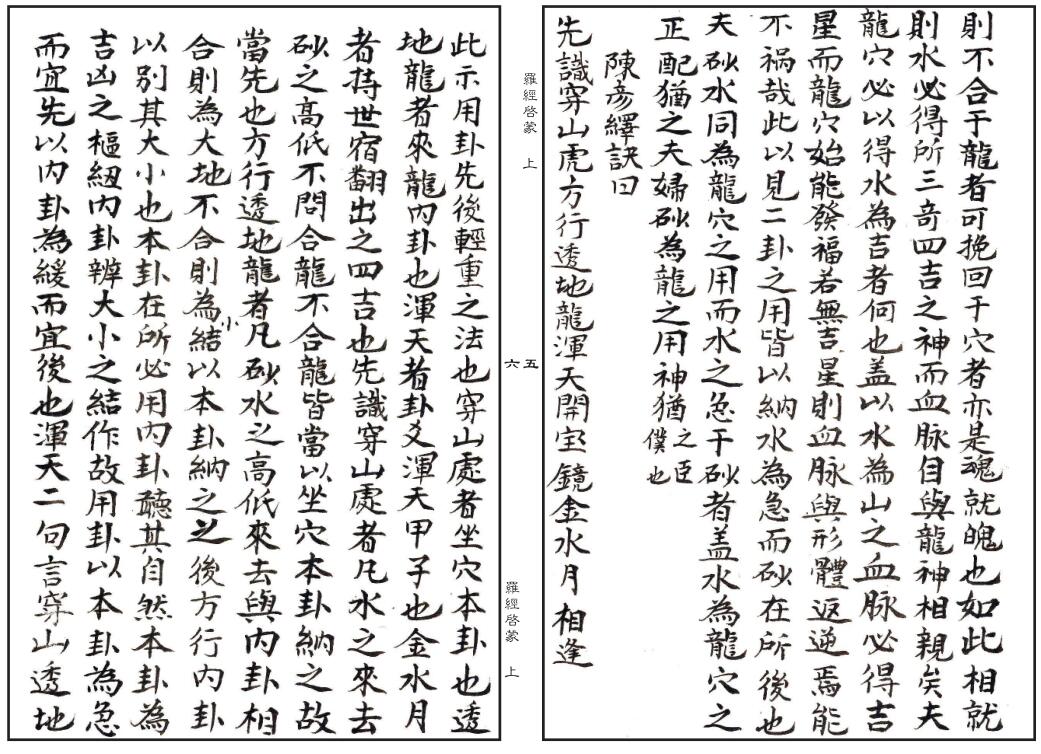 則不合于龍者可挽回于穴者亦是魂就魄也如此相就
則水必得所三奇四吉之神而血脉自與龍神相親矣夫
龍穴必以得水為吉者何也盖以水為山之血脉必得吉
星而龍穴始能發福若無吉星則血脉與形體返逆焉能
不禍哉此以見二卦之用皆以納水為急而砂在所後也
夫砂水同為龍穴之用而水之急于砂者盖水為龍穴之
正配猶之夫婦砂為龍之用神猶之臣
僕也
陳彥繹訣曰
先識穿山虎方行透地龍渾天開宝鏡金水月相逢
羅經啓蒙 上
五
六
羅經啓蒙 上
此示用卦先後輕重之法也穿山處者坐穴本卦也透
地龍者來龍內卦也渾天者卦爻渾天甲子也金水月
者持世宿翻出之四吉也先識穿山處者凡水之來去
砂之高低不問合龍不合龍皆當以坐穴本卦納之故
當先也方行透地龍者凡砂水之高低來去與內卦相
合則為大地不合則為小結以本卦納之之後方行內卦
以別其大小也本卦在所必用內卦聽其自然本卦為
吉凶之樞紐內卦辨大小之結作故用卦以本卦為急
而宜先以內卦為緩而宜後也渾天二句言穿山透地